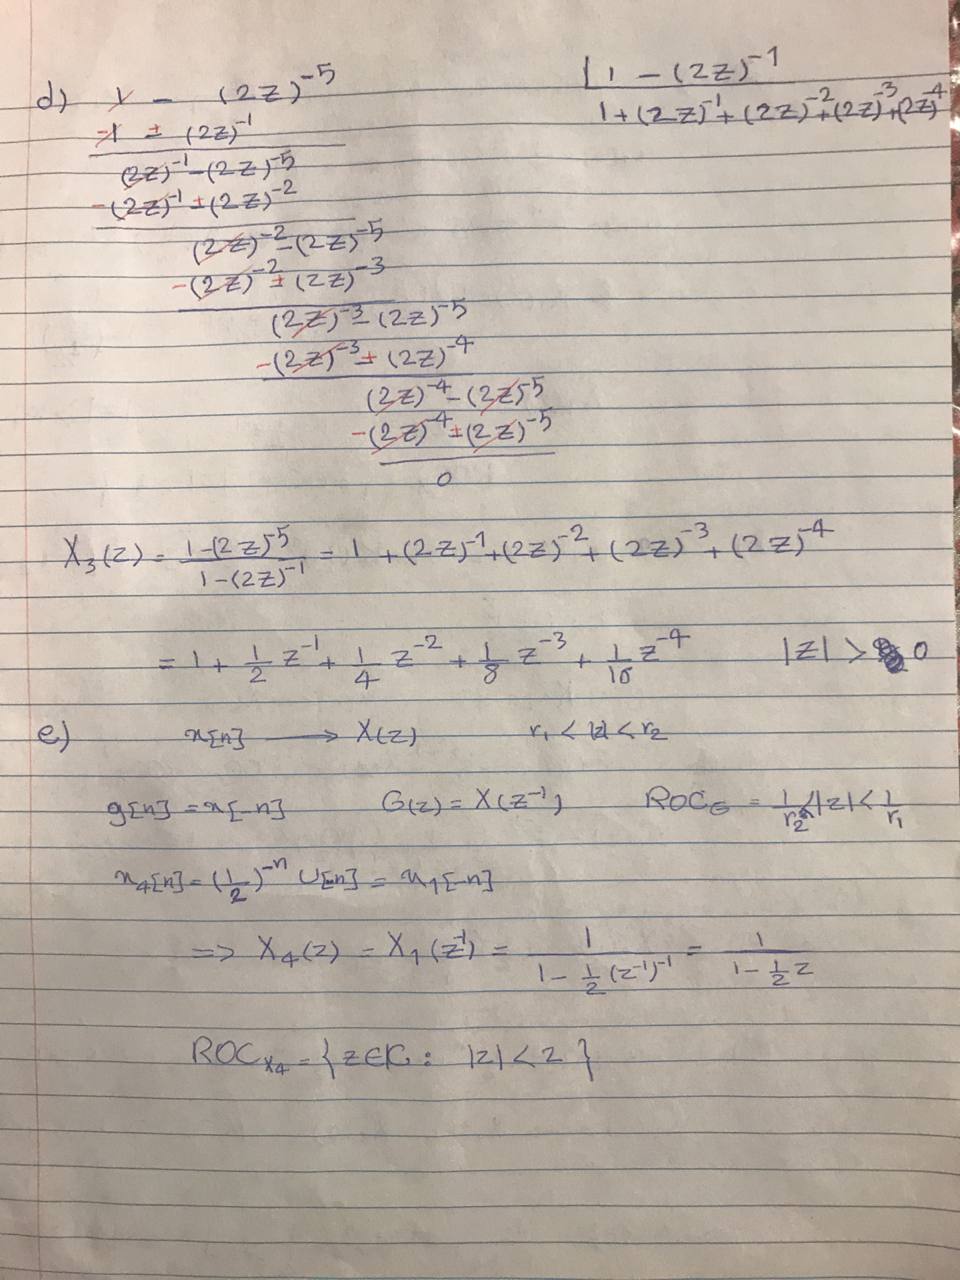 d) 1 - (2z)^-5 | 1 - (2z)^-1
-1 ± (2z)^-1 1 + (2z)^-1 + (2z)^-2 + (2z)^-3 + (2z)^-4
(2z)^-1 - (2z)^-5
-(2z)^-1 ± (2z)^-2
(2z)^-2 - (2z)^-5
-(2z)^-2 ± (2z)^-3
(2z)^-3 - (2z)^-5
-(2z)^-3 ± (2z)^-4
(2z)^-4 - (2z)^-5
-(2z)^-4 ± (2z)^-5
0
X₃(z) = (1-(2z)^-5)/(1-(2z)^-1) = 1 + (2z)^-1 + (2z)^-2 + (2z)^-3 + (2z)^-4
= 1 + 1/2 z^-1 + 1/4 z^-2 + 1/8 z^-3 + 1/16 z^-4 |z| > 0
e) x[n] → X(z) r₁ < |z| < r₂
g[n] = x[-n] G(z) = X(z^-1), ROC_G = 1/r₂ < |z| < 1/r₁
x₄[n] = (1/2)^-n U[-n] = x₁[-n]
=> X₄(z) = X₁(z^-1) = 1/(1 - 1/2 (z^-1)^-1) = 1/(1 - 1/2 z)
ROC_X₄ = {z∈ℂ : |z| < 2}